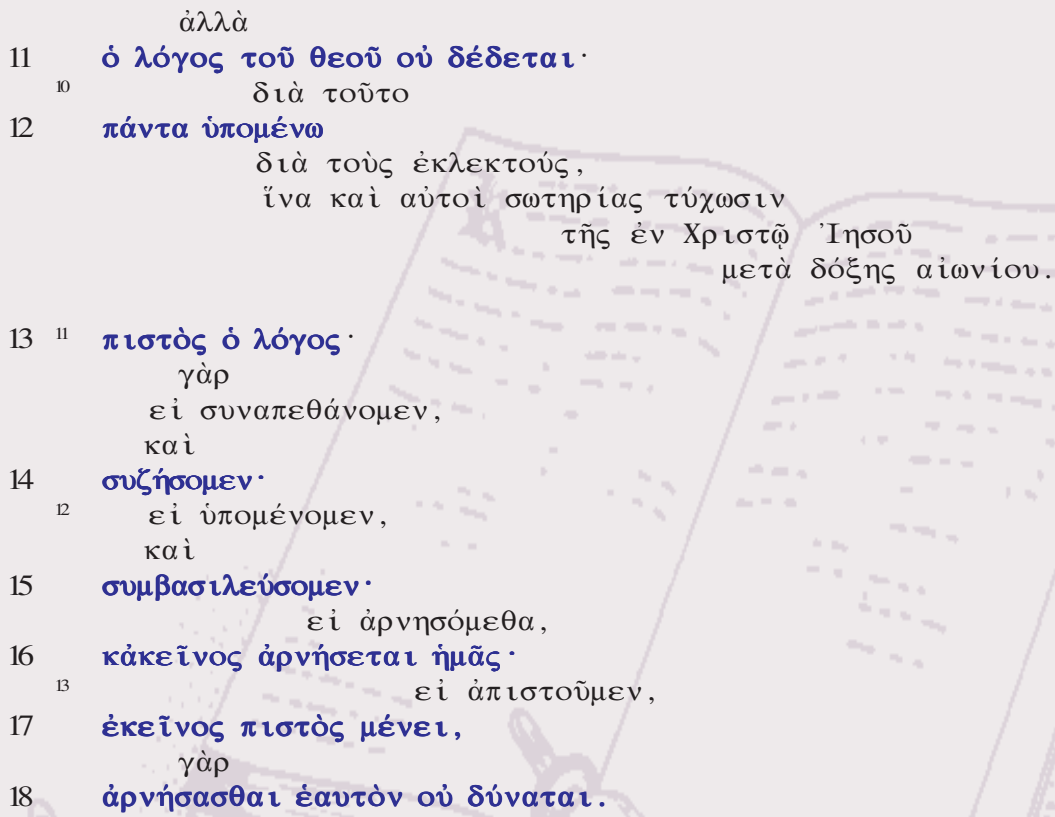 ἀλλὰ
11 ὁ λόγος τοῦ θεοῦ οὐ δέδεται·
10 διὰ τοῦτο
12 πάντα ὑπομένω
διὰ τοὺς ἐκλεκτούς,
ἵνα καὶ αὐτοὶ σωτηρίας τύχωσιν
τῆς ἐν Χριστῷ Ἰησοῦ
μετὰ δόξης αἰωνίου.
13 11 πιστὸς ὁ λόγος·
γὰρ
εἰ συναπεθάνομεν,
καὶ
14 συζήσομεν·
12 εἰ ὑπομένομεν,
καὶ
15 συμβασιλεύσομεν·
εἰ ἀρνησόμεθα,
16 κἀκεῖνος ἀρνήσεται ἡμᾶς·
13 εἰ ἀπιστοῦμεν,
17 ἐκεῖνος πιστὸς μένει,
γὰρ
18 ἀρνήσασθαι ἑαυτὸν οὐ δύναται.